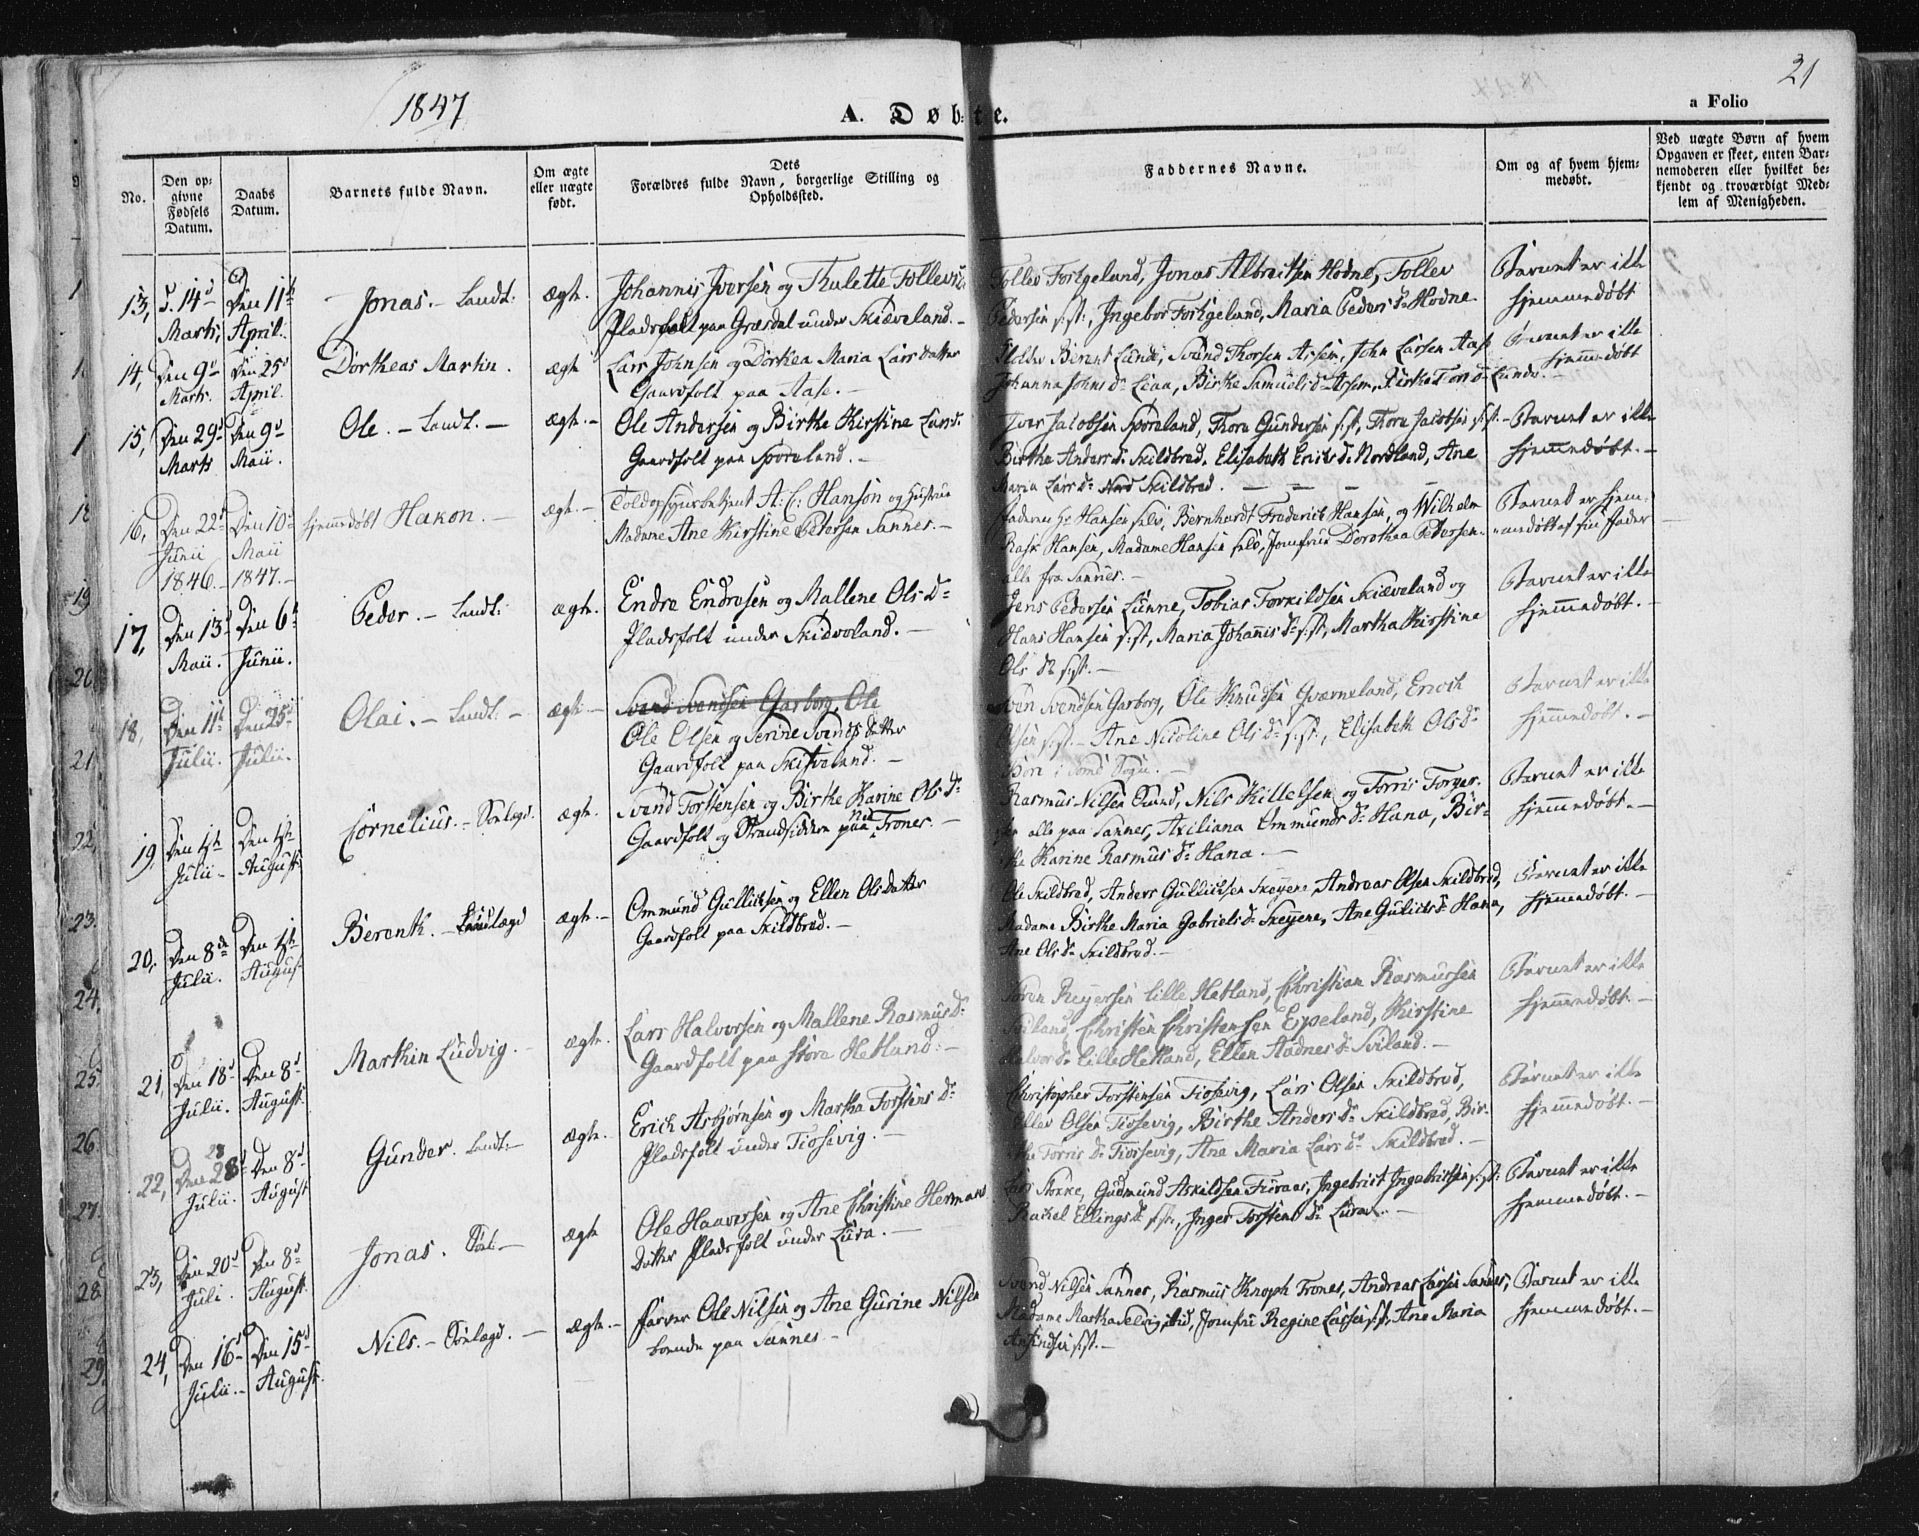 1847
A. Døbte.
a Folio
21
No.
Den op-
givne
Fødsels
Datum.
Daabs
Datum.
Barnets fulde Navn.
Om ægte
eller uægte
født.
Dets
Forældres fulde Navn, borgerlige Stilling og
Opholdssted.
Faddernes Navne.
Om og af hvem hjem-
medøbt.
Ved uægte Børn af hvem
Opgaven er skeet, enten Bar-
nemoderen eller hvilket be-
kjendt og troværdigt Med-
lem af Menigheden.
13, d. 14d Marts, Den 11te April. Jonas. - Landt: ægte. Johannis Iversen og Thulette Tollevsd.
Pladsfolk paa Græsdal under Skiæveland. -
Tollev Forhgeland, Jonas Albreitsen Hodne, Tollev
Pedersen s:st:, Ingebor Forhgeland, Maria Peders Dr Hodne.
Barnet er ikke
hjemmedøbt
14, Den 9d Marts. Den 25d April. Dortheas Martin. ægte Lars Johnsen og Dorthea Maria Larsdatter
Gaardfolk paa Aase. -
Berent Lunde, Svend Thorsen Assen, John Larsen Aase
Johanna Johns Dr Liaa, Birthe Samuels Dr Assen, Birthe Tors Dr Lunde. -
Barnet er ikke
hjemmedøbt
15, Den 29d Marts Den 9d Maii. Ole. - Landt. - ægte. - Ole Andersen og Birthe Kirstine Larsd.
Gaardfolk paa Sporaland. -
Iver Jacobsen Sporeland, Thore Gundersen s:st, Thore Jacobsen s:st: -
Birthe Anders Dr Skildbred, Elisabeth Erichs Dr Nordland, Ane
Maria Lars Dr Skildbred. -
Barnet er ikke
hjemmedøbt. -
16, Den 22d Junii 1846. - Den 10d Maii 1847. - hjemmedøbt Hakon. - ægte. - Toldopsynsbetjent A: C: Hanson og Hustrue
Madame Ane Kirstine Petersen Sannes. -
Faderen Hr Hansen selv, Bernhardt Frederick Hansen, og Wilhelm
Rasm Hansen, Madame Hansen selv, Jomfrue Dorothea Pedersen.
alle fra Sannes. -
Barnet er hjem-
medøbt af sin Fader
17, Den 13d Maii. Den 6te Junii. Peder. - Landt: ægte. Endre Endresen og Mallene Ols Dr
Pladsfolk under Skidveland. -
Jens Pedersen Lunne, Tobias Torkildsen Skiæveland og
Hans Hansen s:st, Maria Johannis Dr s:st, Martha Kirstine
Ols Dr s:st. -
Barnet er ikke
hjemmedøbt. -
18, Den 11te Julii. Den 25d Julii. Olai. - Landt: - ægte - Svend Svendsen Garborg, Ole
Ole Olsen og Serine Svends datter
Gaardfolk paa Skitveland. -
Sven Svendsen Garborg, Ole Knudsen Gværneland, Erich
Olsen s:st. - Ane Nicoline Ols Dr s:st:, Elisabeth Ols Dr
Bore i Sogn. -
Barnet er ikke
hjemmedøbt. -
19, Den 4de Julii - Den 4de August Cornelius. - Sønlægd. ægte. Svend Torstensen og Birthe Karine Ols Dr
Gaardfolk og Strandsiddere paa Ned Trones. -
Rasmus Nilsen Sund, Nils Killelsen og Torris Torger-
sen alle paa Sannes, Axiliana Ommunds Dr Hana, Bir-
the Karine Rasmus Dr Hana. -
Barnet er ikke
hjemmedøbt. -
20, Den 8de Julii. Den 4de August Berenth. - Landlægd ægte. - Ommund Gullichsen og Ellen Olsdatter
Gaardfolk paa Skildbred. -
Ole Skildbred, Anders Gullichsen Skeyene, Andreas Olsen Skildbred,
Madame Birthe Maria Gabriels Dr Skeyene, Ane Gulichs Dr Hana,
Ane Ols Dr Skildbred. -
Barnet er ikke
hjemmedøbt. -
21, Den 18d Julii. Den 8d August. Marthin Ludvig. - ægte. Lars Halvorsen og Mallene Rasmus Dr
Gaardfolk paa store Hetland. -
Søren Reyersen lille Hetland, Christian Rasmussen
Sviland, Christen Christensen Epeland, Kirstine
Halvors Dr lille Hetland, Ellen Aadnes Dr Sviland. -
Barnet er ikke
hjemmedøbt. -
22, Den 28d Julii. Den 8d August Gunder. Landt: - ægte. Erich Asbjørnsen og Martha Torstens Dr
Pladsfolk under Tiosevig. -
Christopher Torstensen Tiosevig, Lars Olsen Skildbred,
Tollev Olsen Tiosevig, Birthe Anders Dr Skildbred, Bir-
the Torris Dr Tiosevig, Ane Maria Lars Dr Skildbred. -
Barnet er ikke
hjemmedøbt. -
23, Den 20d Juli. Den 8d August. Jonas. Sønl: - ægte Ole Haaversen og Ane Christine Hermans
Datter Pladsfolk under Lura. -
Lars Stokke, Gudmund Askildsen Furaas, Ingebrist Ingebristsen s:st:
Rachel Ellings Dr s:st:, Inger Torstens Dr Lura. -
Barnet er ikke
hjemmedøbt. -
24, Den 16d Julii. - Den 15d August. Nils. - Sønlægd. - ægte. - Farver Ole Nilsen og Ane Gurine Nilsen
boende paa Sannes -
Svend Nilsen Sannes, Rasmus Knoph Trones, Andreas Larsen Sannes,
Madame Martha Selvig, Jomfru Regine Larsen s:st, Ane Maria
s:st. -
Barnet er ikke
hjemmedøbt. -